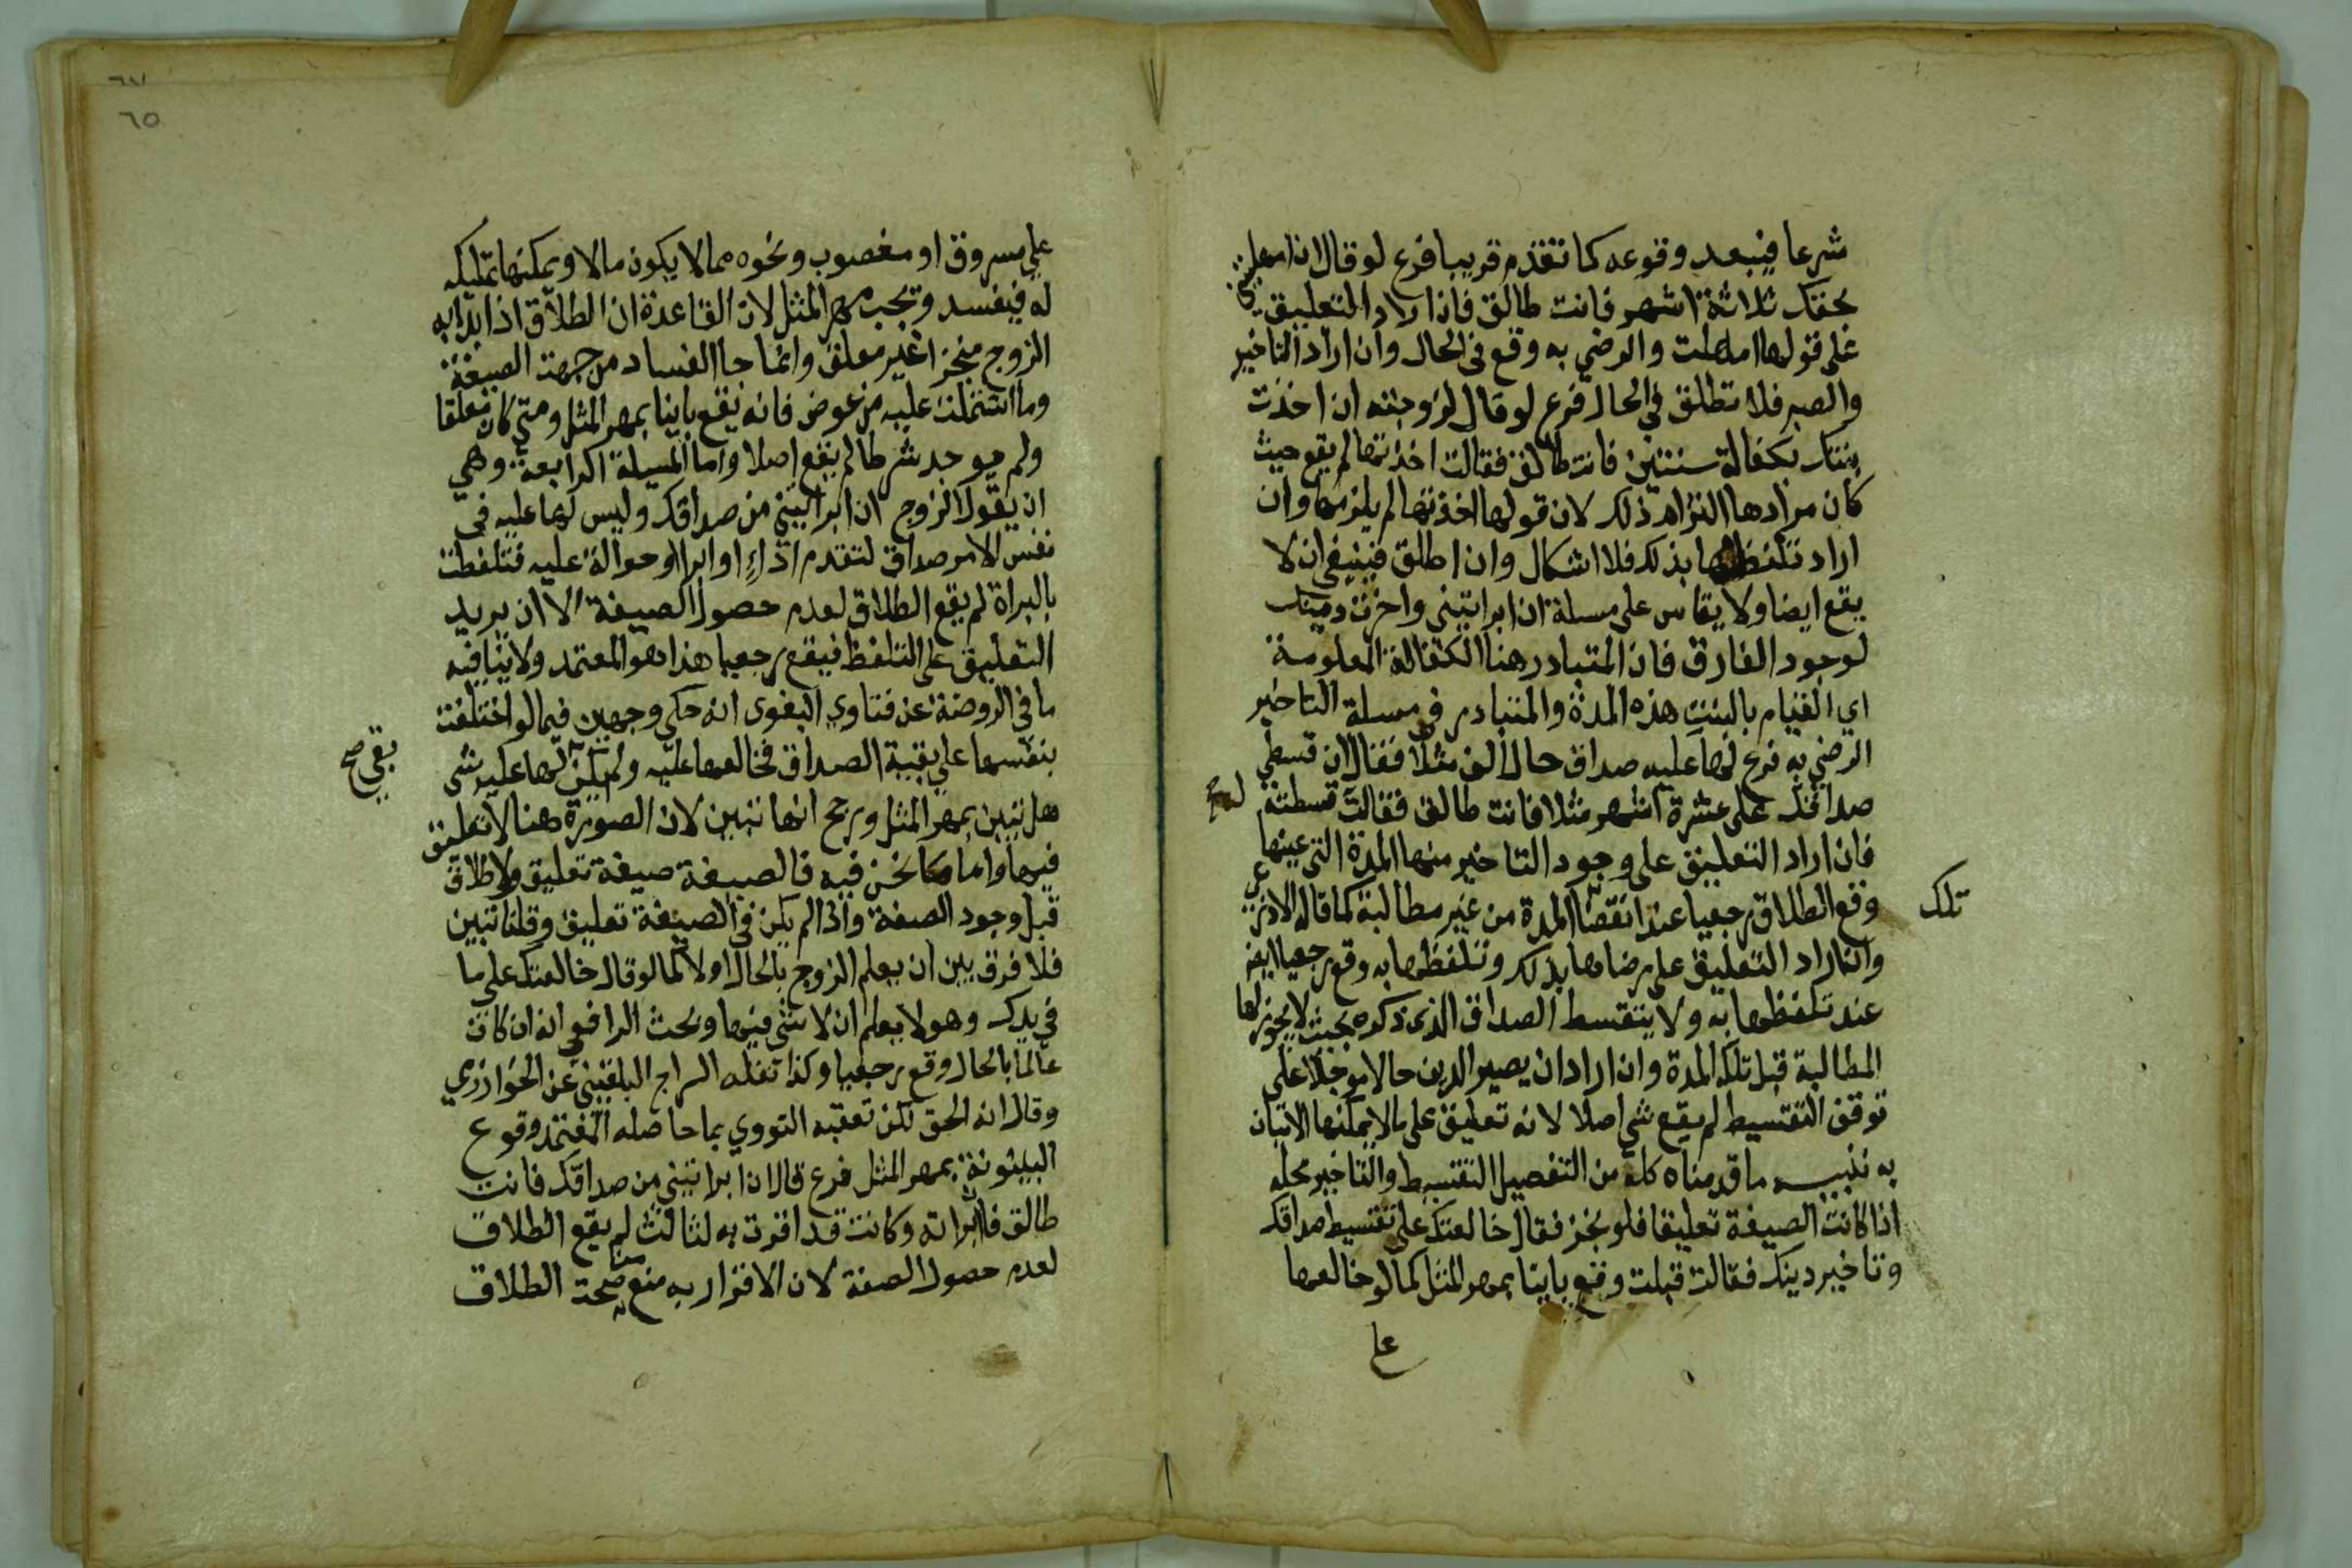 شرعا فيبعد وقوعه كما تقدم قريبا فرع لو قال ان امهلتيني
بحقك ثلاثة اشهر فانت طالق فان اراد التعليق
على قولها امهلت والرضي به وقع في الحال وان اراد التاخير
والصبر فلا تطلق في الحال فرع لو قال لزوجته ان اخذت
بنتك بكفالة سنتين فانت طالق فقالت اخذتها لم يقع حيث
كان مرادها التزام ذلك لان قولها اخذتها لم يلزمها وان
اراد تلفظها بذلك فلا اشكال وان اطلق فينبغي ان لا
يقع ايضا ولا يقاس على مسلة ان ابراتيني واخرت دينك
لوجود الفارق فان المتبادر هنا الكفالة المعلومة
اي القيام بالبنت هذه المدة والمتبادر في مسلة التاخير
الرضي به فرع لها عليه صداق حال الف مثلا فقال ان قسطي
صداقك على عشرة اشهر مثلا فانت طالق فقالت قسطته
فان اراد التعليق على وجود التاخير منها المدة التي عينها
وقع الطلاق رجعيا عند انقضا المدة من غير مطالبة كما قاله الاذرعي
تلك
وان اراد التعليق على رضاها بذلك وتلفظها به وقع رجعيا ايضا
عند تلفظها به ولا يتقسط الصداق الذي ذكره بحيث لا يجوز لها
المطالبة قبل تلك المدة وان اراد ان يصير الدين حالا موجلا على
توقف التقسيط لم يقع شي اصلا لانه تعليق على ما لا يمكنها الاتيان
به تنبيه ما قدمناه كله من التفصيل التقسيط والتاخير محله
اذا كانت الصيغة تعليقا فلو نجز فقال خالعتك على تقسيط صداقك
وتاخير دينك فقالت قبلت وقع باينا بمهر المثل كما لو خالعها
على
٦٥
على مسروق او مغصوب ونحوه مما لا يكون مالا ويمكنها تمليكه
له فيفسد وتجب مهر المثل لان القاعدة ان الطلاق اذا ابدا به
الزوج منجزا غير معلق وانما جا الفساد من جهت الصيغة
وما اشتملت عليه من عوض فانه يقع باينا بمهر المثل ومتى كان معلقا
ولم يوجد شرطه لم يقع اصلا واما المسيلة الرابعة وهي
ان يقول الزوج ان ابراتيني من صداقك وليس لها عليه في
نفس الامر صداق لتقدم اداء او ابرا او حوالة عليه فتلفظت
بالبراة لم يقع الطلاق لعدم حصول الصيغة الا ان يريد
التعليق على التلفظ فيقع رجعيا هذا هو المعتمد ولا ينافيه
ما في الروضة عن فتاوي البغوى انه حكى وجهين فيما لو اختلفت
بنفسها على بقية الصداق فخالعها عليه ولم يكن لها عليه شي
بقي صح
هل تبين بمهر المثل ورجح انها تبين لان الصورة هنا لا تعليق
فيها واما ما نحن فيه فالصيغة صيغة تعليق ولا طلاق
قبل وجود الصفة واذا لم يكن في الصيغة تعليق وقلنا تبين
فلا فرق بين ان يعلم الزوج بالحال او لا كما لو قال خالعتك على ما
في يدك وهو لا يعلم ان لا شي فيها وبحث الرافعي انه ان كان
عالما بالحال وقع رجعيا وكذا نقله السراج البلقيني عن الخوارزمي
وقال انه الحق لكن تعقبه النووي بما حاصله المعتمد وقوع
البينونة بمهر المثل فرع قال ان ابراتيني من صداقك فانت
طالق فابراته وكانت قد اقرت به لثالث لم يقع الطلاق
لعدم حصول الصفة لان الاقرار به منع صحة الطلاق